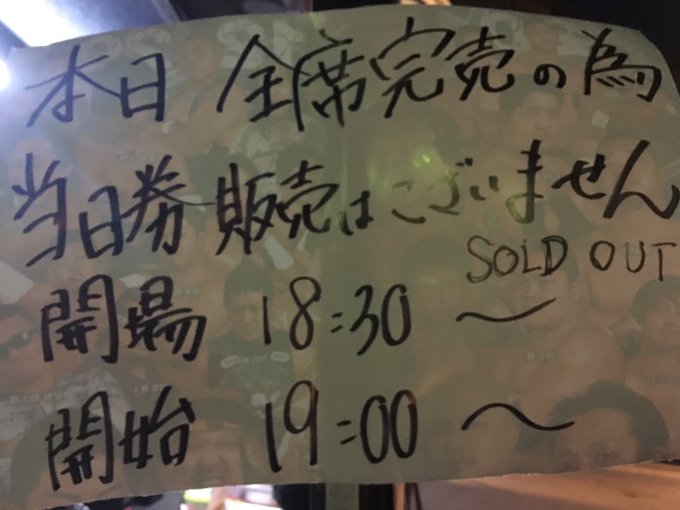 本日 全席完売の為
当日券 販売はございません
SOLD OUT
開場 18:30 〜
開始 19:00 〜